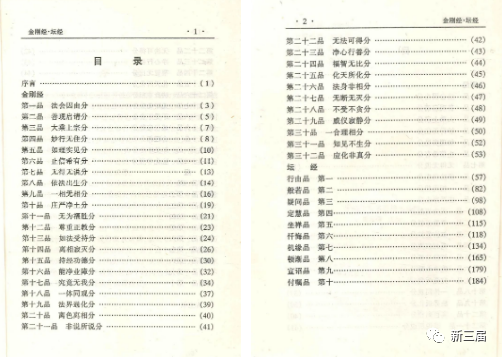 金刚经·坛经
·1·
目 录
序言 (1)
金刚经
第一品 法会因由分 (3)
第二品 善现启请分 (5)
第三品 大乘正宗分 (7)
第四品 妙行无住分 (8)
第五品 如理实见分 (10)
第六品 正信希有分 (11)
第七品 无得无说分 (13)
第八品 依法出生分 (14)
第九品 一相无相分 (16)
第十品 庄严净土分 (19)
第十一品 无为福胜分 (21)
第十二品 尊重正教分 (23)
第十三品 如法受持分 (24)
第十四品 离相寂灭分 (26)
第十五品 持经功德分 (30)
第十六品 能净业障分 (32)
第十七品 究竟无我分 (34)
第十八品 一体同观分 (37)
第十九品 法界通化分 (39)
第二十品 离色离相分 (40)
第二十一品 非说所说分 (41)
·2·
金刚经·坛经
第二十二品 无法可得分 (42)
第二十三品 净心行善分 (43)
第二十四品 福智无比分 (44)
第二十五品 化无所化分 (45)
第二十六品 法身非相分 (46)
第二十七品 无断无灭分 (47)
第二十八品 不受不贪分 (48)
第二十九品 威仪寂静分 (49)
第三十品 一合理相分 (50)
第三十一品 知见不生分 (52)
第三十二品 应化非真分 (53)
坛 经
行由品 第一 (57)
般若品 第二 (82)
疑问品 第三 (98)
定慧品 第四 (108)
坐禅品 第五 (115)
忏悔品 第六 (118)
机缘品 第七 (134)
顿渐品 第八 (163)
宣诏品 第九 (179)
付嘱品 第十 (184)
新三届